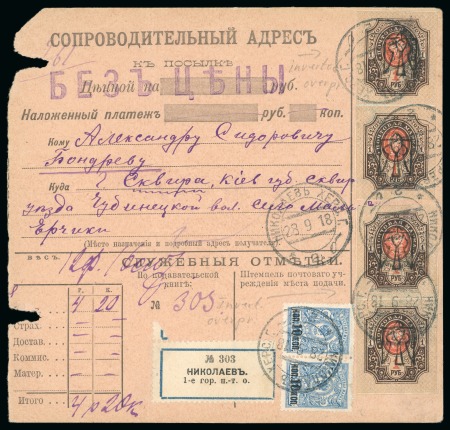 СОПРОВОДИТЕЛЬНЫЙ АДРЕСЪ
КЪ ПОСЫЛКѢ
БЕЗЪ ЦѢНЫ
Цѣнной на руб.
Наложенный платежъ руб. коп.
Кому Александру Сидоровичу
Бондреву
Куда г. Сквира, Кіев губ. Сквир
уѣзда Чубинецкой вол. село
Ерчики
(Мѣсто назначенія и подробный адресъ получателя)
НИКОЛАЕВЪ ХЕРС. Г.
28 9 18
ВѢСЪ.
СЛУЖЕБНЫЯ ОТМѢТКИ
По подавательской книгѣ:
Штемпель почтоваго учрежденія мѣста подачи.
№ 303
Р. К.
4 20
Страх.
Достав.
Коммис.
Матер.
Итого 4 р 20 к
№ 303
НИКОЛАЕВЪ.
1-е гор. п.-т. о.
коп 10 коп
коп 10 коп
РУБ
РУБ
РУБ
РУБ